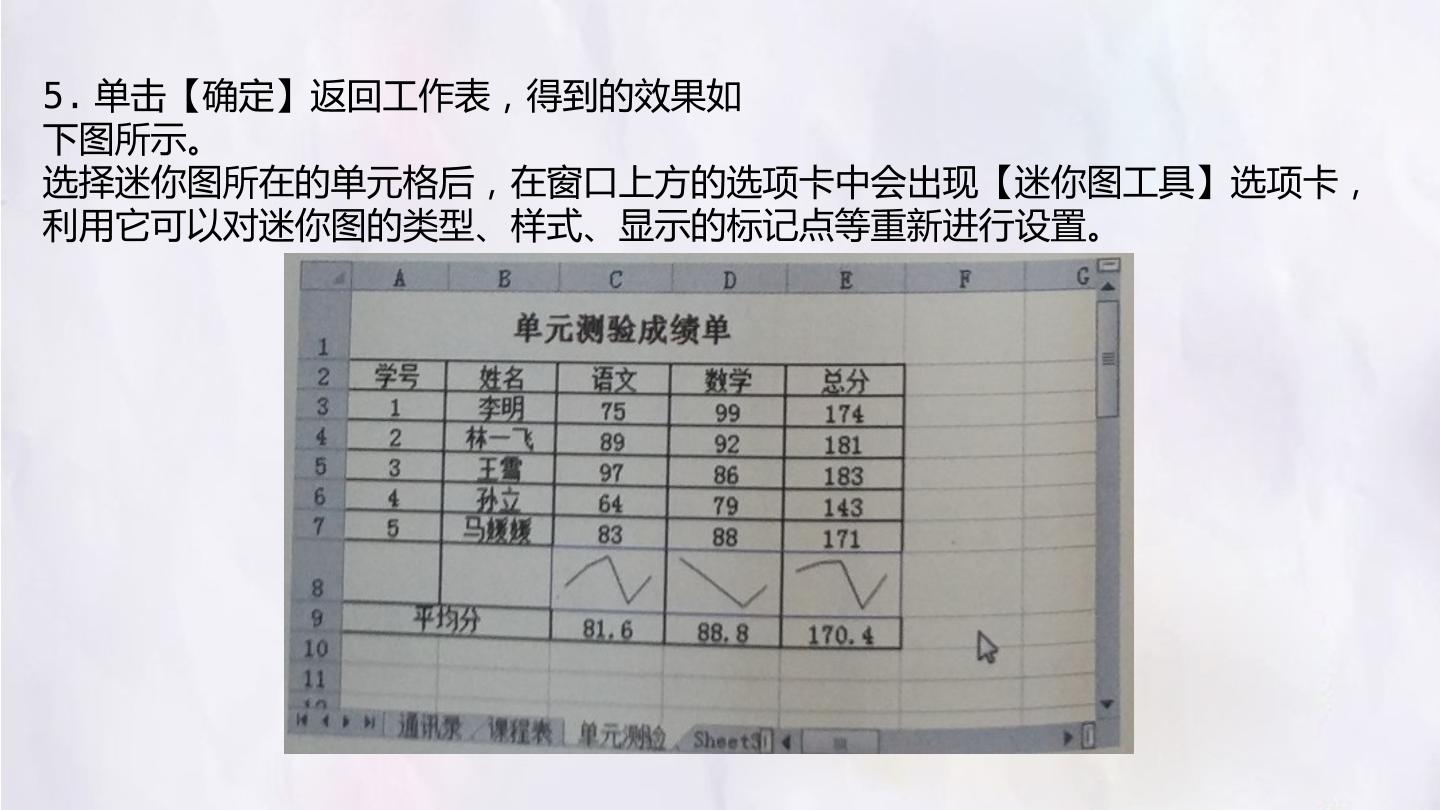 5．单击【确定】返回工作表，得到的效果如
下图所示。
选择迷你图所在的单元格后，在窗口上方的选项卡中会出现【迷你图工具】选项卡，
利用它可以对迷你图的类型、样式、显示的标记点等重新进行设置。
A B C D E F G
1 单元测验成绩单
2 学号 姓名 语文 数学 总分
3 1 李明 75 99 174
4 2 林一飞 89 92 181
5 3 王雪 97 86 183
6 4 孙立 64 79 143
7 5 马媛媛 83 88 171
8
9 平均分 81.6 88.8 170.4
10
11
12
通讯录 课程表 单元测验 Sheet3